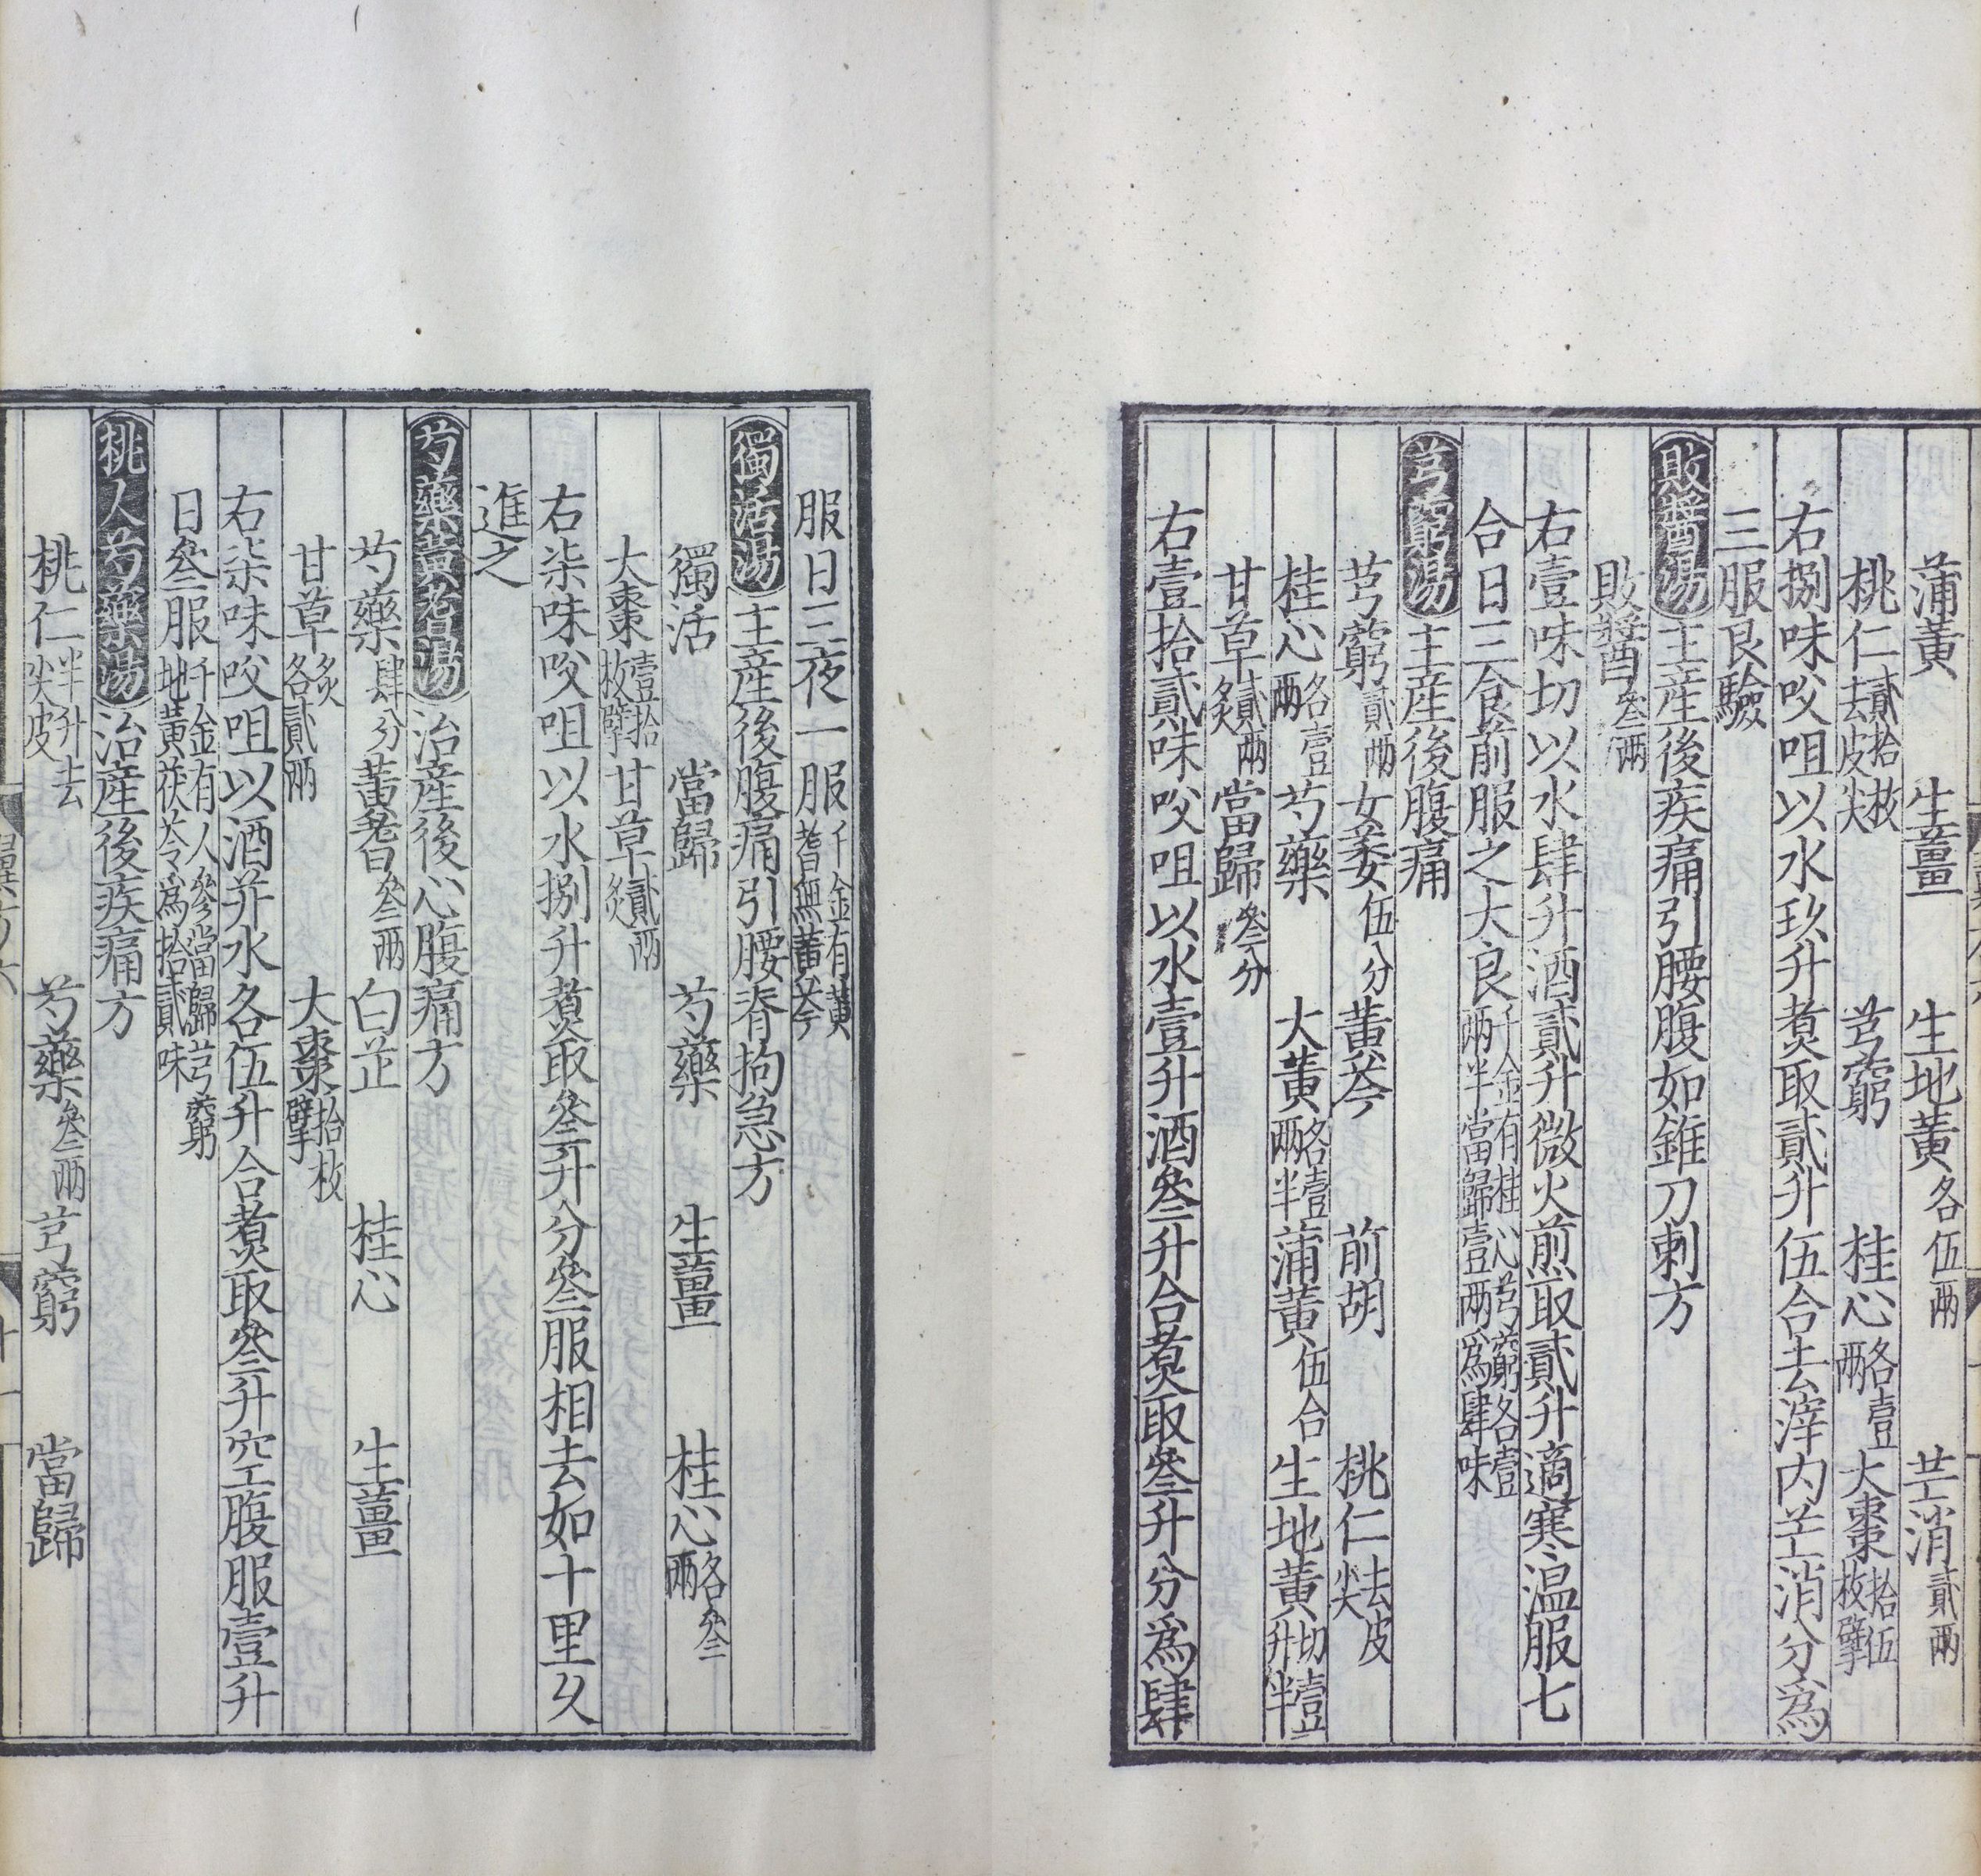 蒲黃 生薑 生地黃各伍兩 芒消貳兩
桃仁貳拾枚去皮尖 芎藭 桂心各壹兩 大棗拾伍枚擘
右捌味㕮咀以水玖升煑取貳升伍合去滓内芒消分爲
三服良驗
敗醬湯主産後疾痛引腰腹如錐刀刺方
敗醬叄兩
右壹味切以水肆升酒貳升微火煎取貳升適寒温服七
合日三食前服之大良千金有桂心芎藭各壹兩半當歸壹兩爲肆味
芎藭湯主産後腹痛
芎藭貳兩 女萎伍分 黃芩 前胡 桃仁去皮尖
桂心各壹兩 芍藥 大黃各壹兩半 蒲黃伍合 生地黃切壹升半
甘草貳兩炙 當歸叄分
右壹拾貳味㕮咀以水壹升酒叄升合煑取叄升分爲肆
服日三夜一服千金有黃耆無黃芩
獨活湯主産後腹痛引腰脊拘急方
獨活 當歸 芍藥 生薑 桂心各叄兩
大棗壹拾枚擘 甘草貳兩炙
右柒味㕮咀以水捌升煑取叄升分叄服相去如十里乆
進之
芍藥黃耆湯治産後心腹痛方
芍藥肆分 黃耆叄兩 白芷 桂心 生薑
甘草炙各貳兩 大棗拾枚擘
右柒味㕮咀以酒并水各伍升合煑取叄升空腹服壹升
日叄服千金有人參當歸芎藭地黃茯苓爲拾貳味
桃人芍藥湯治産後疾痛方
桃仁半升去尖皮 芍藥叄兩 芎藭 當歸